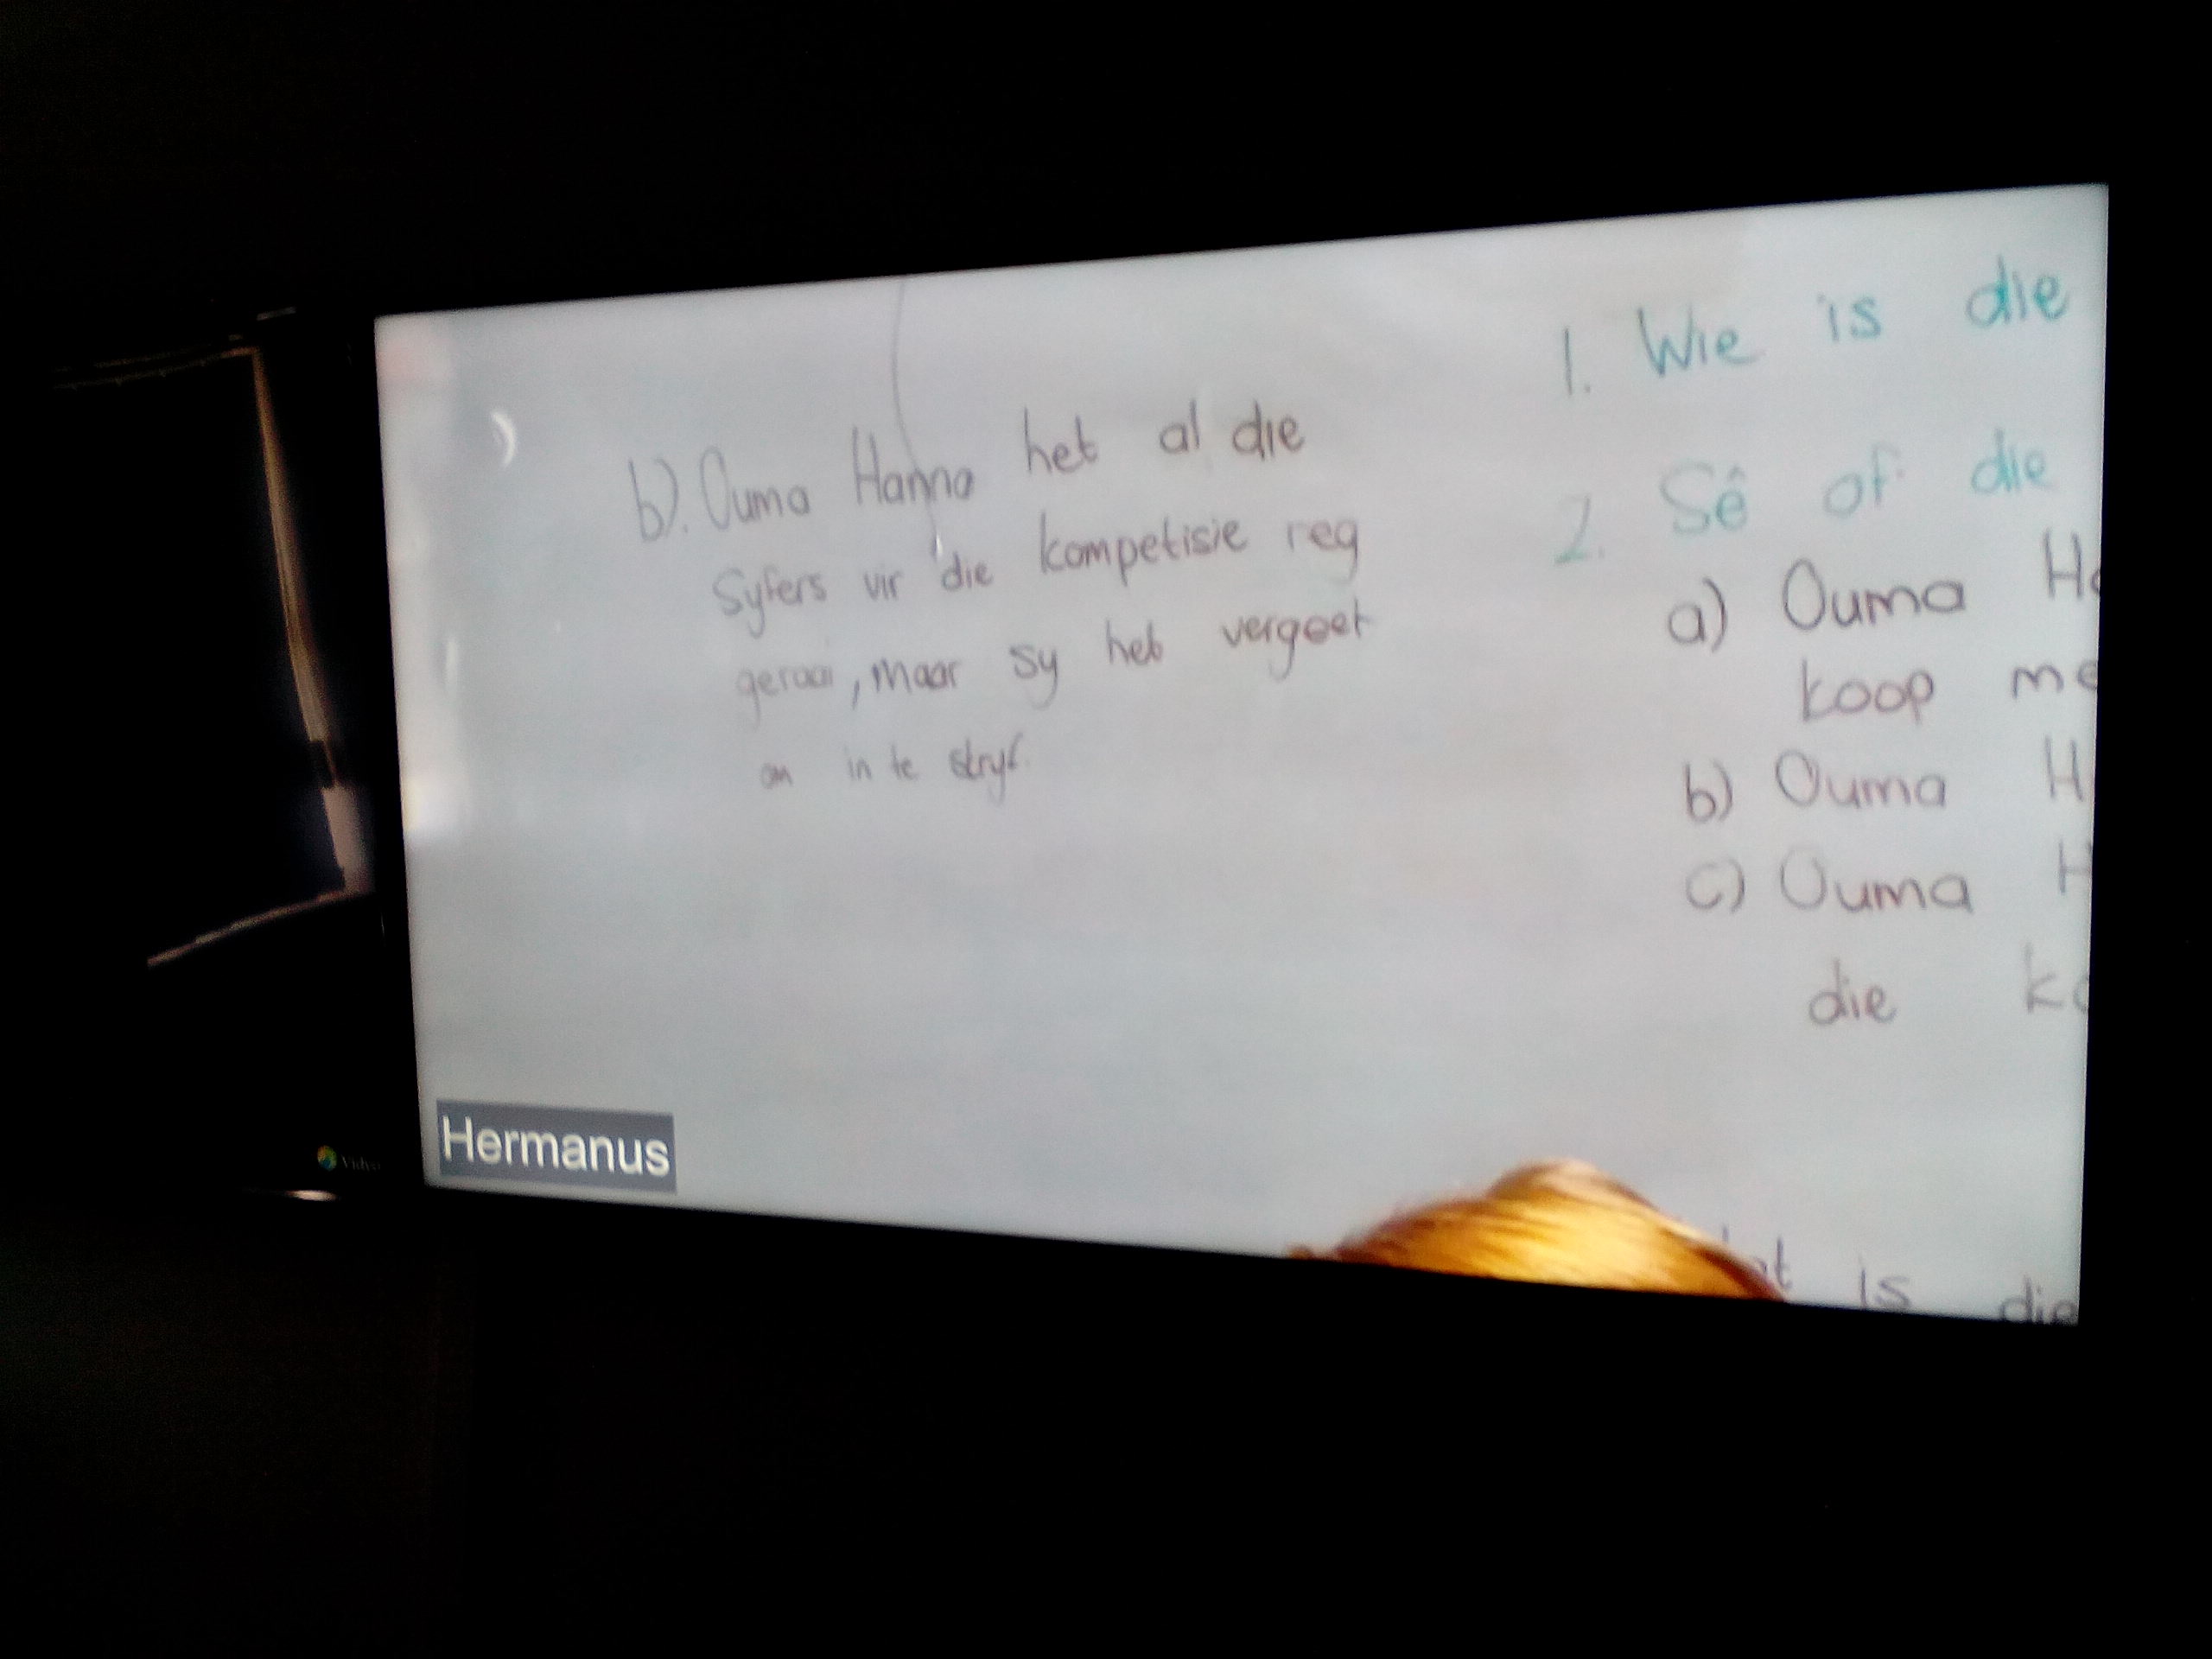 b). Ouma Hanna het al die
Syfers vir die kompetisie reg
geraai, maar sy het vergeet
om in te stryf.
1. Wie is die
2. Sê of die
a) Ouma Ha
koop me
b) Ouma H
c) Ouma H
die ko
is die
Hermanus
Vidyo